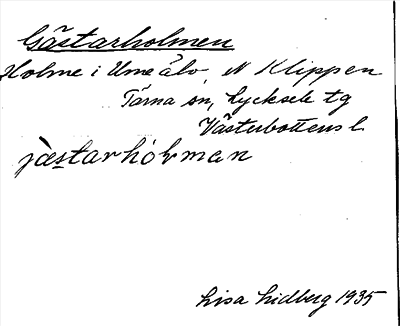 Gästarholmen
Holme i Ume älv, N Klippen
Tärna sn, Lycksele tg
Västerbottens l
jæstarhólman
Lisa Lidberg 1935